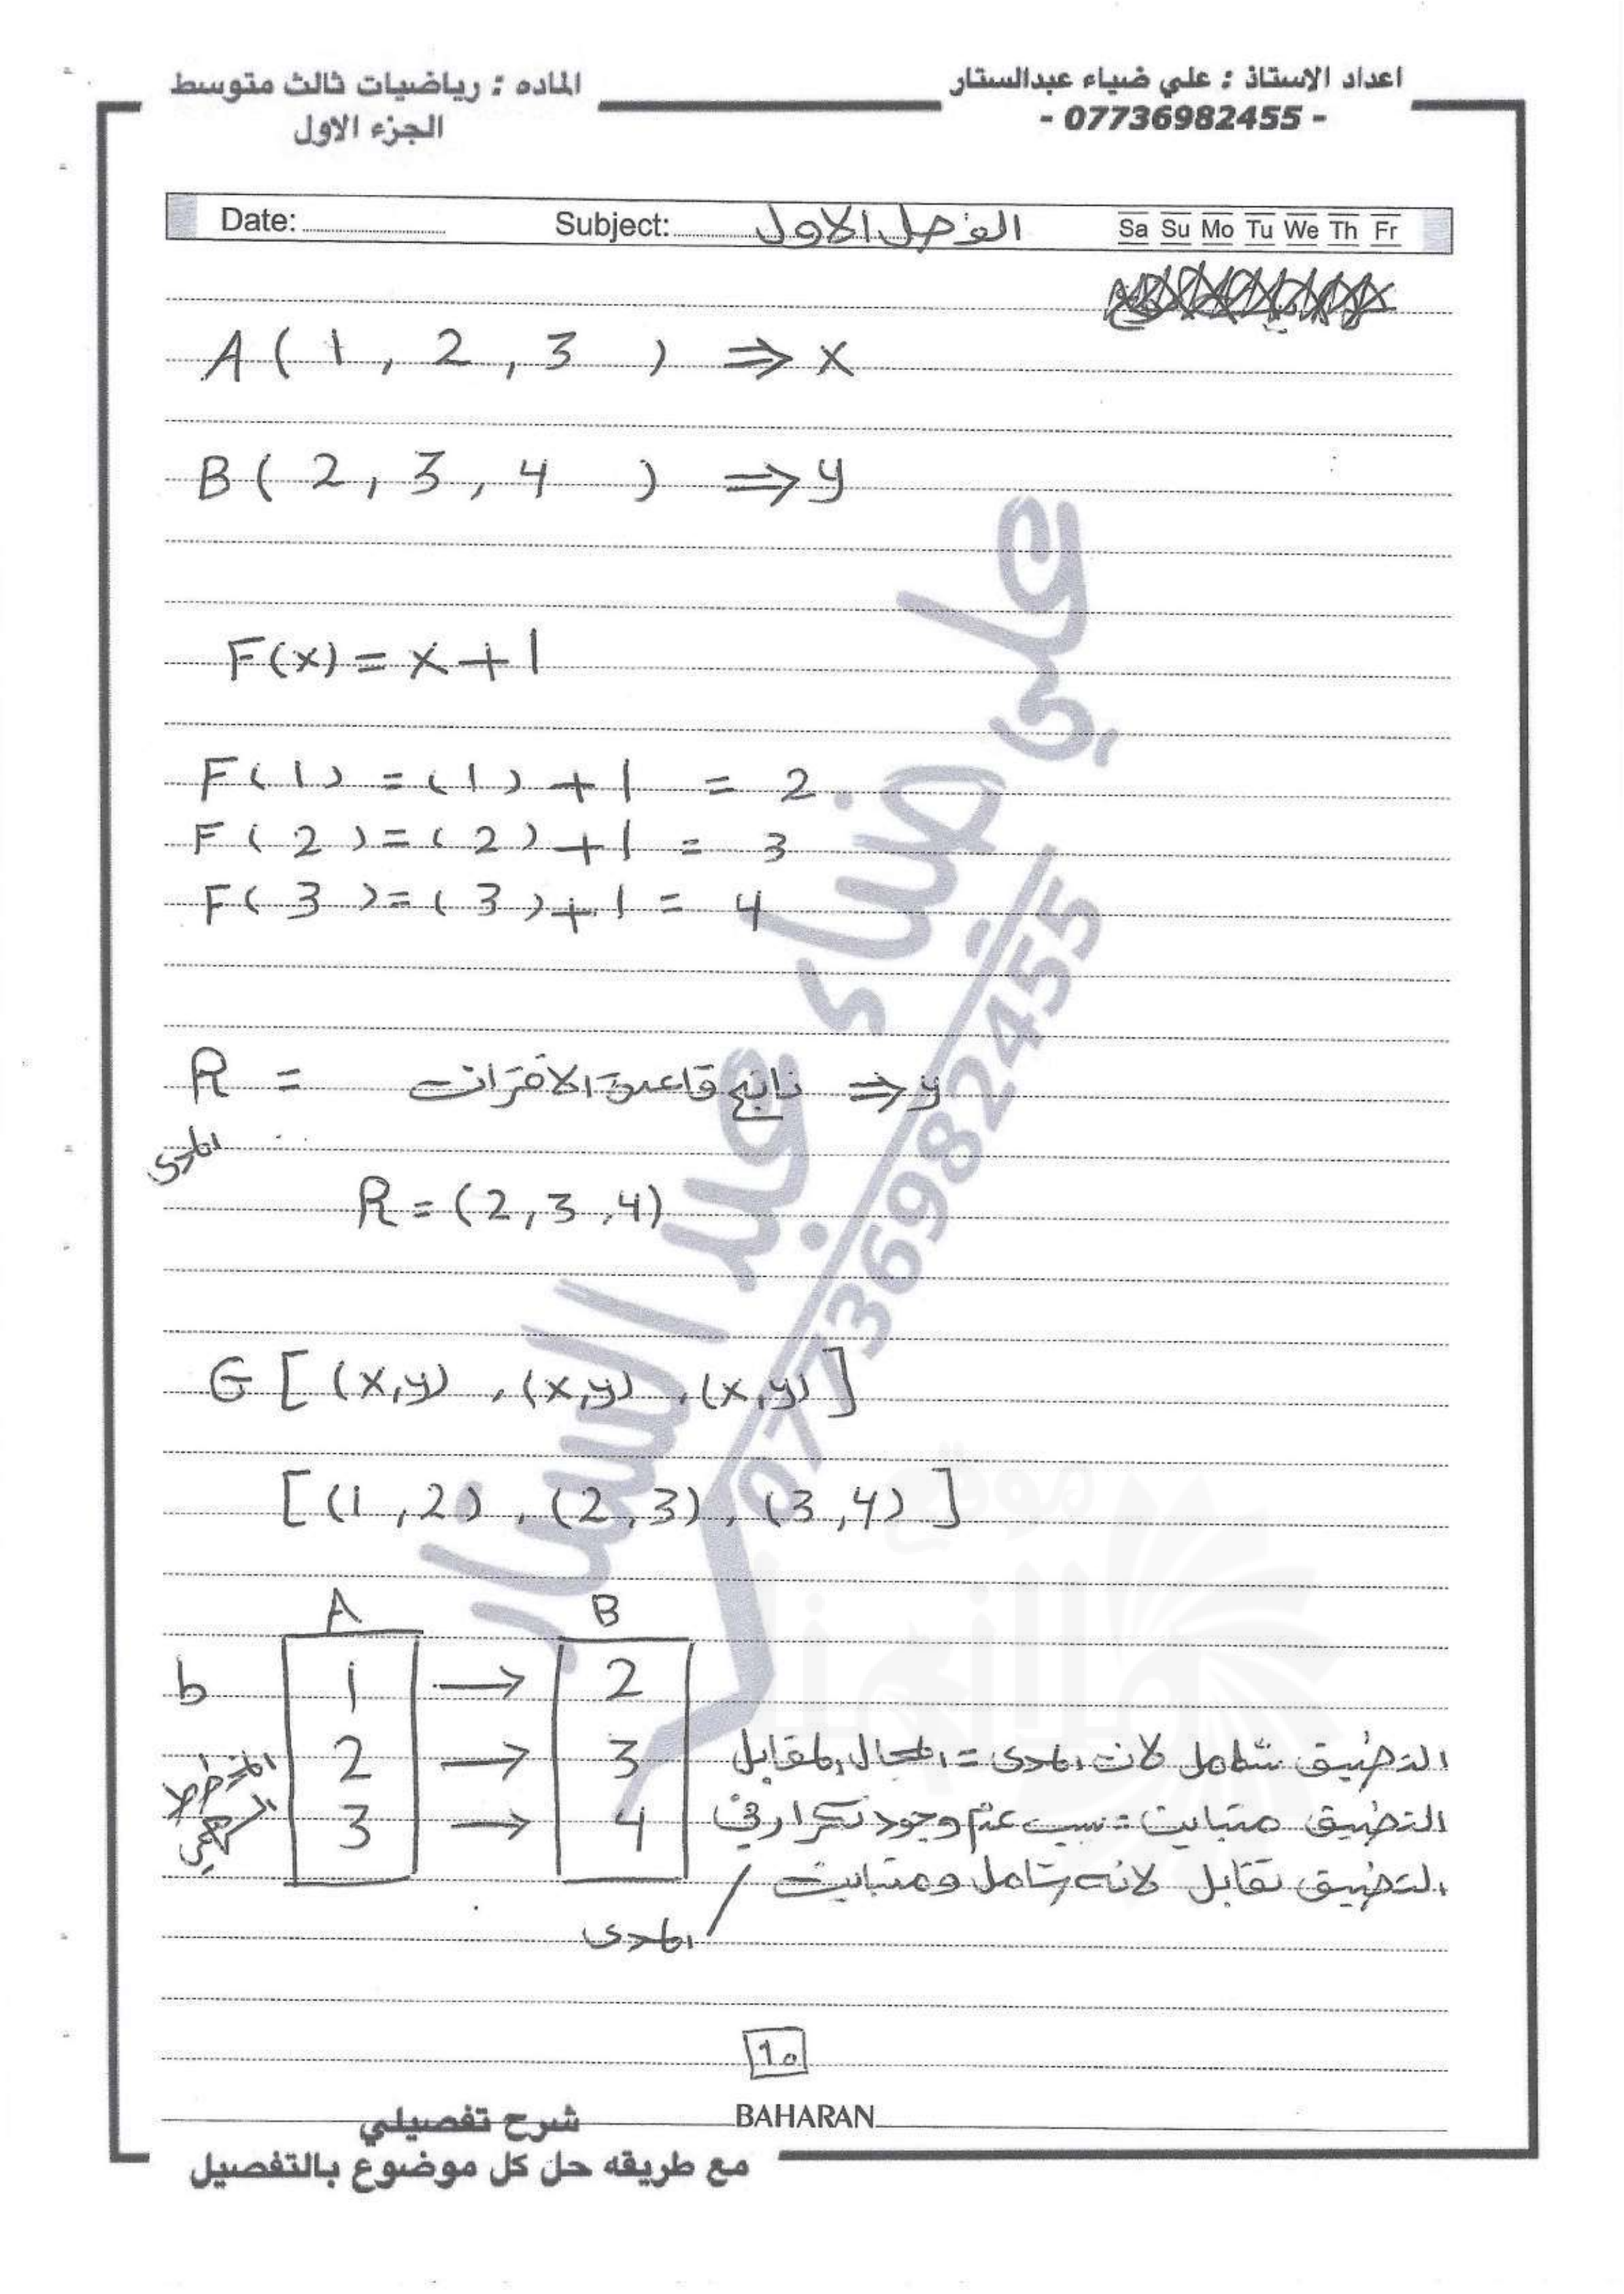 اعداد الاستاذ : علي ضياء عبدالستار
- 07736982455 -
الماده : رياضيات ثالث متوسط
الجزء الاول
Date: Subject: الفصل الاول Sa Su Mo Tu We Th Fr
A ( 1 , 2 , 3 ) ⇒ x
B ( 2 , 3 , 4 ) ⇒ y
F(x) = x + 1
F(1) = (1) + 1 = 2
F(2) = (2) + 1 = 3
F(3) = (3) + 1 = 4
R = ناتج قاعدة الاقتران ⇒ y
المدى
R = (2,3,4)
G [ (x,y) , (x,y) , (x,y) ]
[ (1,2) , (2,3) , (3,4) ]
A B
b 1 → 2
المخطط السهمي
2 → 3
3 → 4
التطبيق شامل لان المدى = المجال المقابل
التطبيق متباين = نسبب عدم وجود تكرار في / المدى
التطبيق تقابل لانه شامل ومتباين
10
BAHARAN
شرح تفصيلي
مع طريقه حل كل موضوع بالتفصيل
علي ضياء عبد الستار
07736982455
موقع